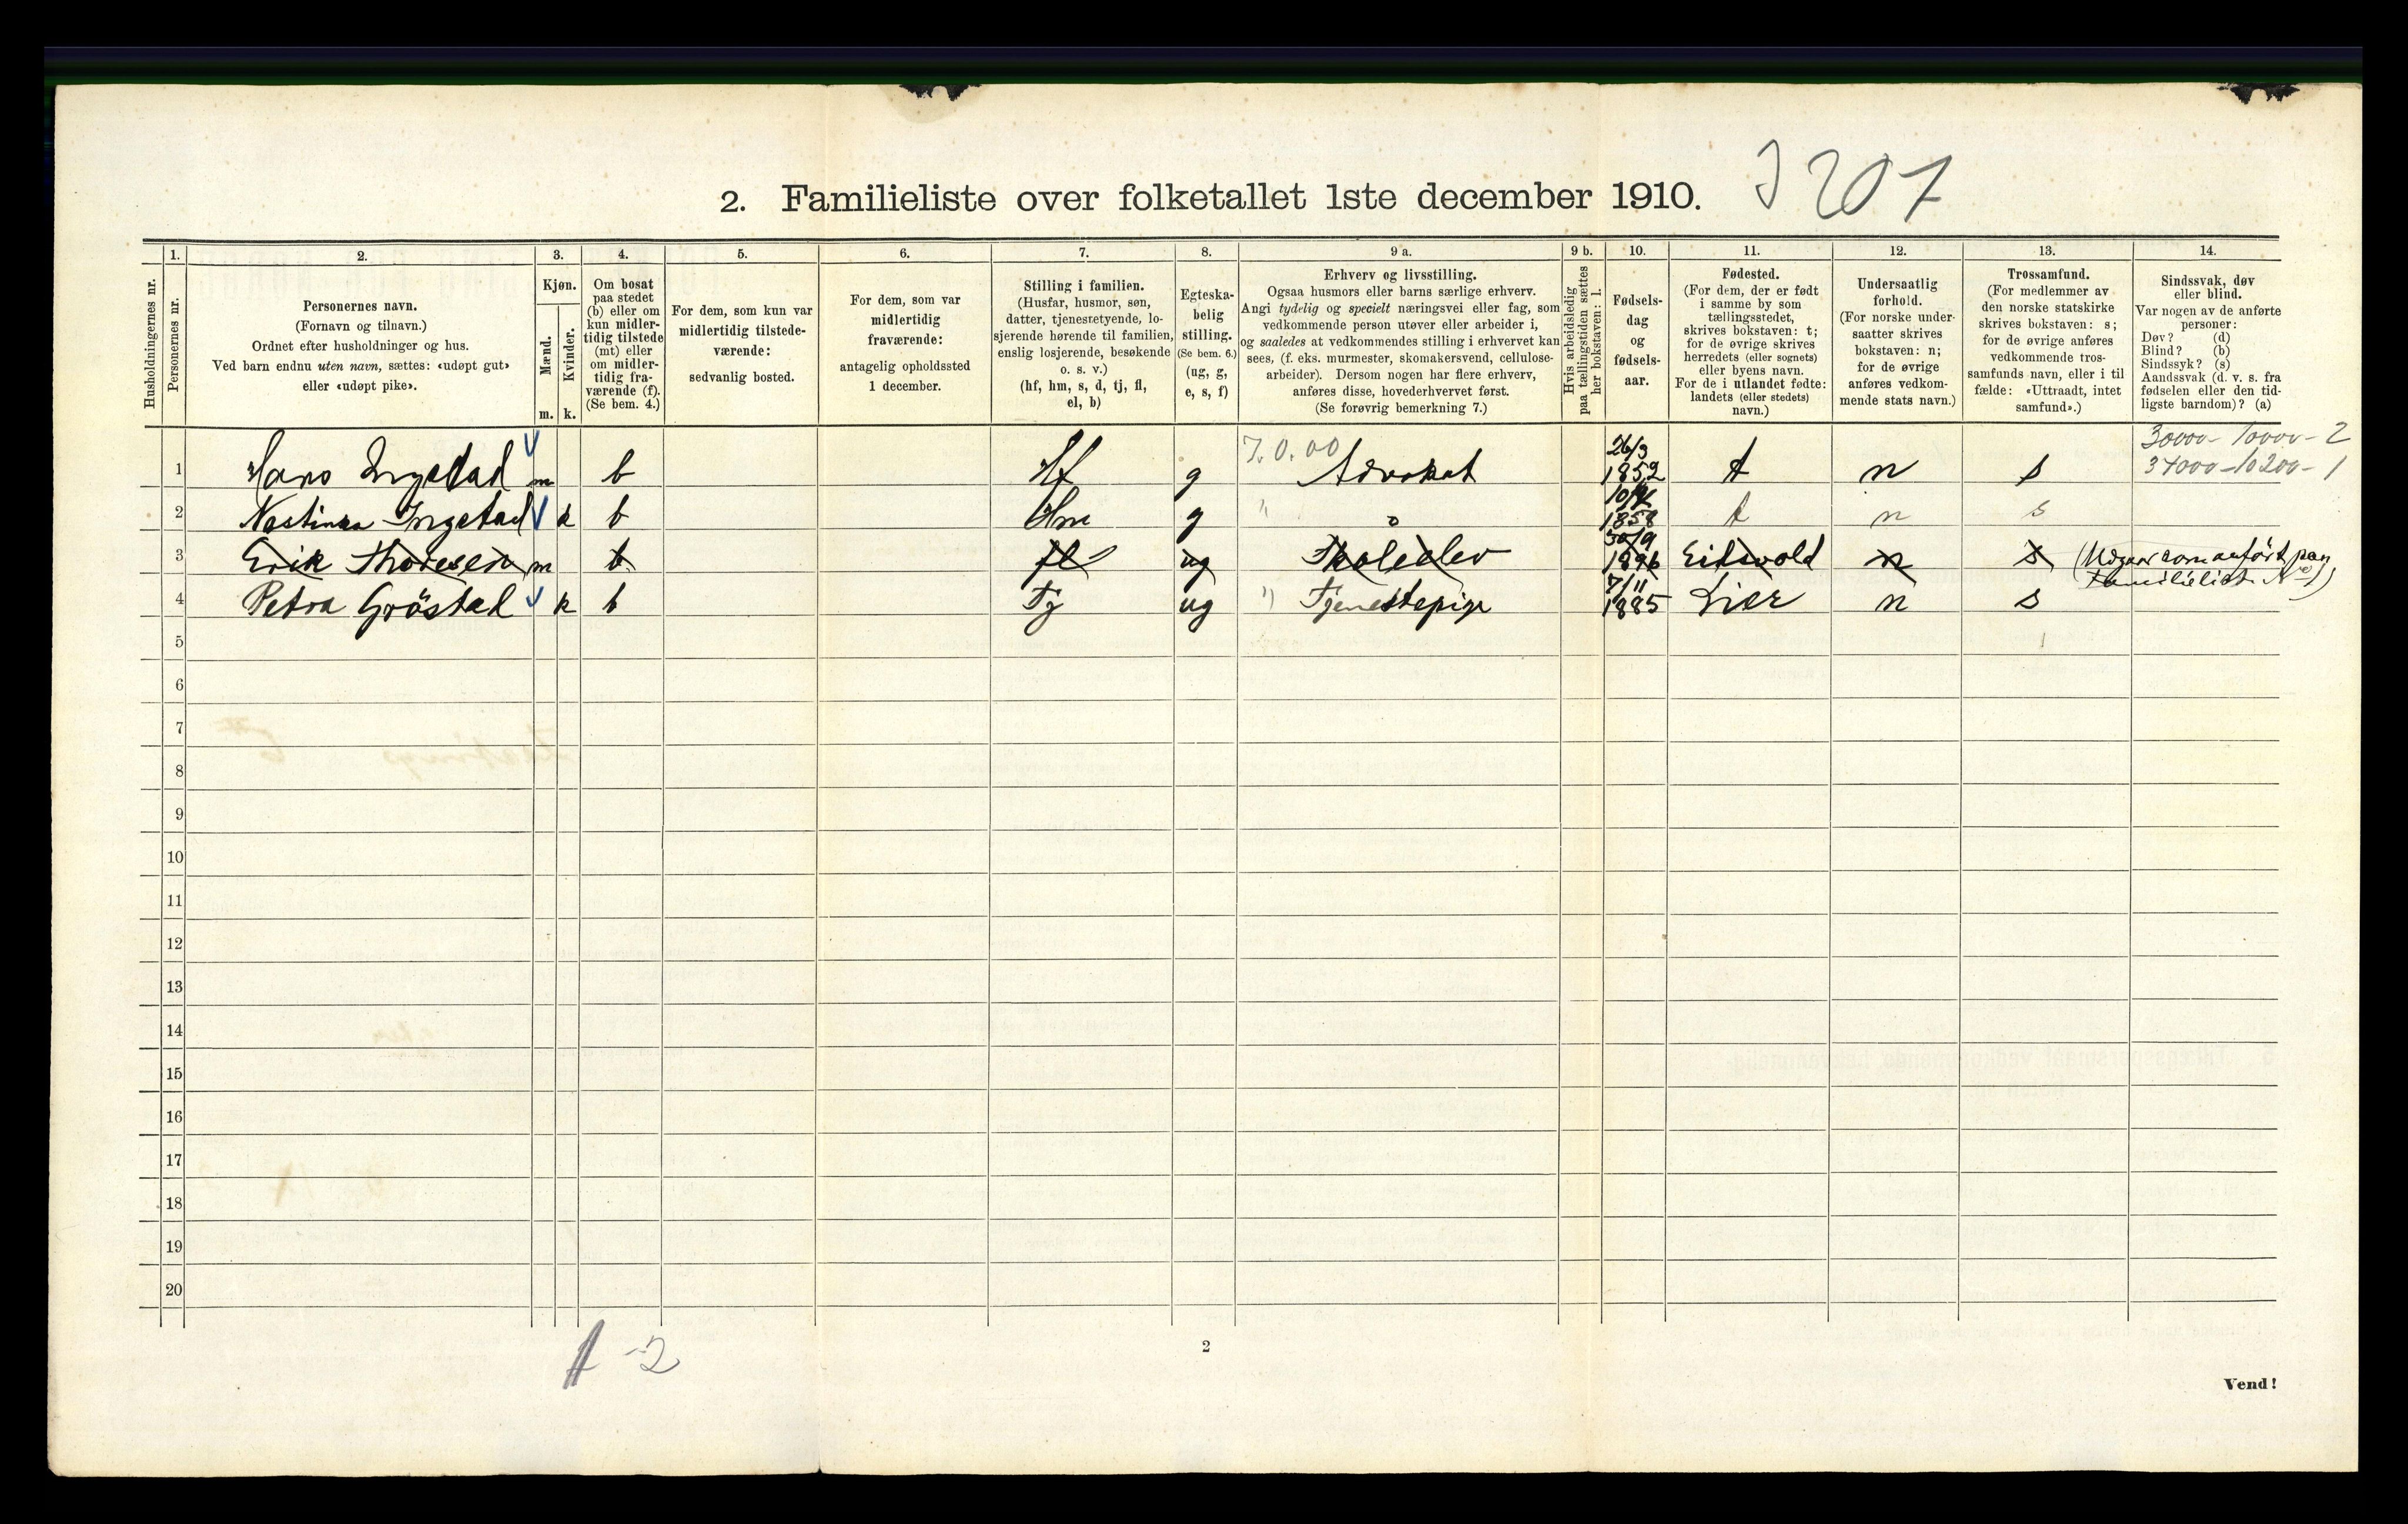 2. Familieliste over folketallet 1ste december 1910. J 207
1. 2. 3. 4. 5. 6. 7. 8. 9 a. 9 b. 10. 11. 12. 13. 14.
Husholdningernes nr.
Personernes nr.
Personernes navn.
(Fornavn og tilnavn.)
Ordnet efter husholdninger og hus.
Ved barn endnu uten navn, sættes: «udøpt gut»
eller «udøpt pike».
Kjøn.
Mænd.
Kvinder.
m. k.
Om bosat
paa stedet
(b) eller om
kun midler-
tidig tilstede
(mt) eller
om midler-
tidig fra-
værende (f).
(Se bem. 4.)
For dem, som kun var
midlertidig tilstede-
værende:
sedvanlig bosted.
For dem, som var
midlertidig
fraværende:
antagelig opholdssted
1 december.
Stilling i familien.
(Husfar, husmor, søn,
datter, tjenestetyende, lo-
sjerende hørende til familien,
enslig losjerende, besøkende
o. s. v.)
(hf, hm, s, d, tj, fl,
el, b)
Egteska-
belig
stilling.
(Se bem. 6.)
(ug, g,
e, s, f)
Erhverv og livsstilling.
Ogsaa husmors eller barns særlige erhverv.
Angi tydelig og specielt næringsvei eller fag, som
vedkommende person utøver eller arbeider i,
og saaledes at vedkommendes stilling i erhvervet kan
sees, (f. eks. murmester, skomakersvend, cellulose-
arbeider). Dersom nogen har flere erhverv,
anføres disse, hovederhvervet først.
(Se forøvrig bemerkning 7.)
Hvis arbeidsledig
paa tællingstiden sættes
her bokstaven: l.
Fødsels-
dag
og
fødsels-
aar.
Fødested.
(For dem, der er født
i samme by som
tællingsstedet,
skrives bokstaven: t;
for de øvrige skrives
herredets (eller sognets)
eller byens navn.
For de i utlandet fødte:
landets (eller stedets)
navn.)
Undersaatlig
forhold.
(For norske under-
saatter skrives
bokstaven: n;
for de øvrige
anføres vedkom-
mende stats navn.)
Trossamfund.
(For medlemmer av
den norske statskirke
skrives bokstaven: s;
for de øvrige anføres
vedkommende tros-
samfunds navn, eller i til
fælde: «Uttraadt, intet
samfund».)
Sindssvak, døv
eller blind.
Var nogen av de anførte
personer:
Døv? (d)
Blind? (b)
Sindssyk? (s)
Aandssvak (d. v. s. fra
fødselen eller den tid-
ligste barndom)? (a)
30000 - 10000 - 2
1 Hans Ingstad m b Hf g 7.0.00 Advokat 26/3 1852 t n s 34000 - 10200 - 1
2 Ingstad k b Hm g " 1858 t n s
3 Erik Thoresen m b fl ug Skoleelev 30/9 1896 Eidsvold n s (Utgaar som anført paa
familieliste No 1)
4 Petra Gröstad k b Tj ug " Tjenestepige 7/11 1885 Lier n s
5
6
7
8
9
10
11
12
13
14
15
16
17
18
19
20
A - 2
2
Vend!